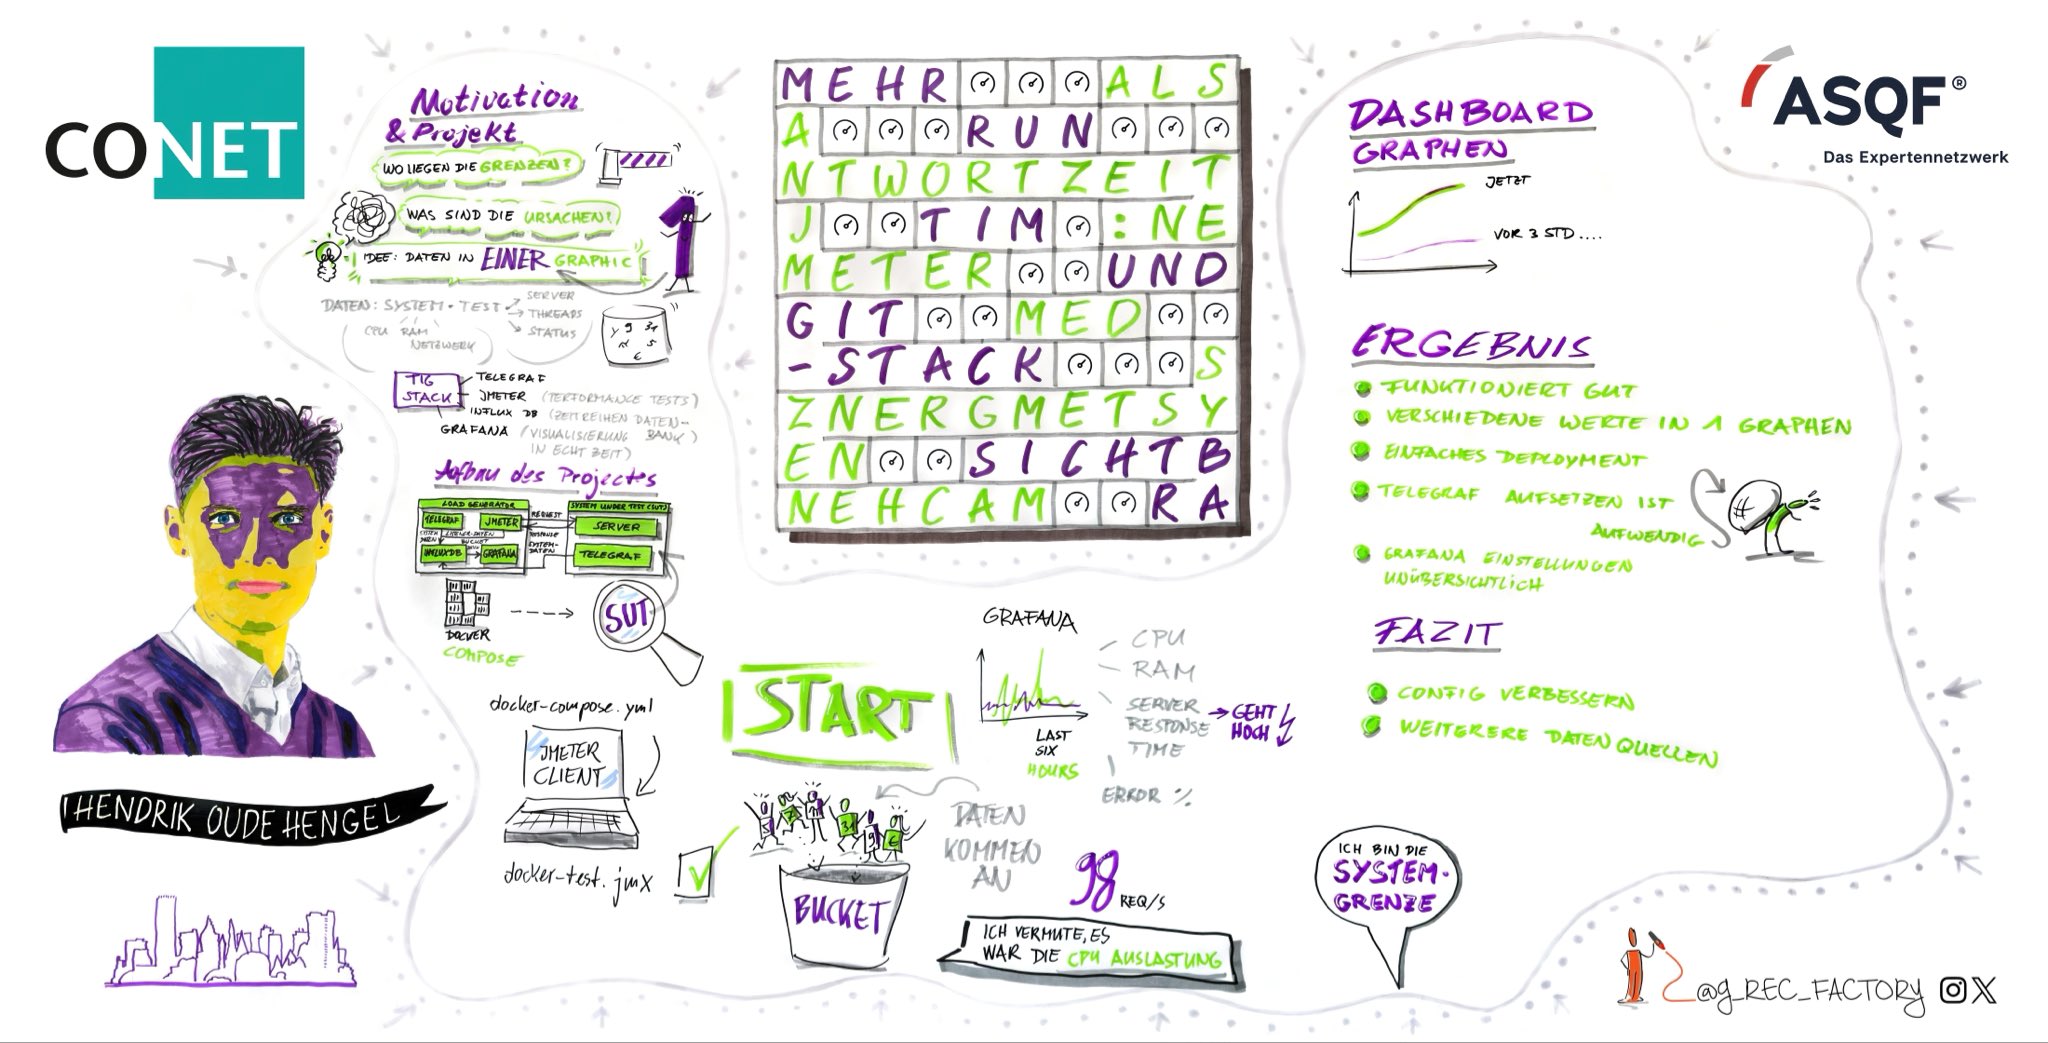 CONET
Motivation
& Projekt
WO LIEGEN DIE GRENZEN?
WAS SIND DIE URSACHEN?
IDEE: DATEN IN EINER GRAPHIC
DATEN: SYSTEM + TEST
SERVER
THREADS
STATUS
CPU RAM
NETZWERK
TIG
STACK
TELEGRAF
JMETER (PERFORMANCE TESTS)
INFLUX DB (ZEITREIHEN DATEN-
BANK)
GRAFANA (VISUALISIERUNG
IN ECHTZEIT)
Aufbau des Projectes
LOAD GENERATOR
TELEGRAF
JMETER
SYSTEM
DATEN
LISTENER-DATEN
BUCKET
INFLUXDB
GRAFANA
REQUEST
RESPONSE
SYSTEM-
DATEN
SYSTEM UNDER TEST (SUT)
SERVER
TELEGRAF
DOCKER
COMPOSE
SUT
docker-compose.yml
JMETER
CLIENT
docker-test.jmx
HENDRIK OUDE HENGEL
MEHR ALS
A RUN
NTWORTZEIT
J TIM : NE
METER UND
GIT MED
-STACK S
ZNERGMETSY
EN SICHTB
NEHCAM RA
START
BUCKET
DATEN
KOMMEN
AN
GRAFANA
LAST
SIX
HOURS
CPU
RAM
SERVER
RESPONSE
TIME
GEHT
HOCH
ERROR %
98 REQ/S
ICH VERMUTE, ES
WAR DIE CPU AUSLASTUNG
ICH BIN DIE
SYSTEM-
GRENZE
DASHBOARD
GRAPHEN
JETZT
VOR 3 STD....
ERGEBNIS
FUNKTIONIERT GUT
VERSCHIEDENE WERTE IN 1 GRAPHEN
EINFACHES DEPLOYMENT
TELEGRAF AUFSETZEN IST
AUFWENDIG
GRAFANA EINSTELLUNGEN
UNÜBERSICHTLICH
FAZIT
CONFIG VERBESSERN
WEITERERE DATENQUELLEN
ASQF®
Das Expertennetzwerk
@g_REC_FACTORY